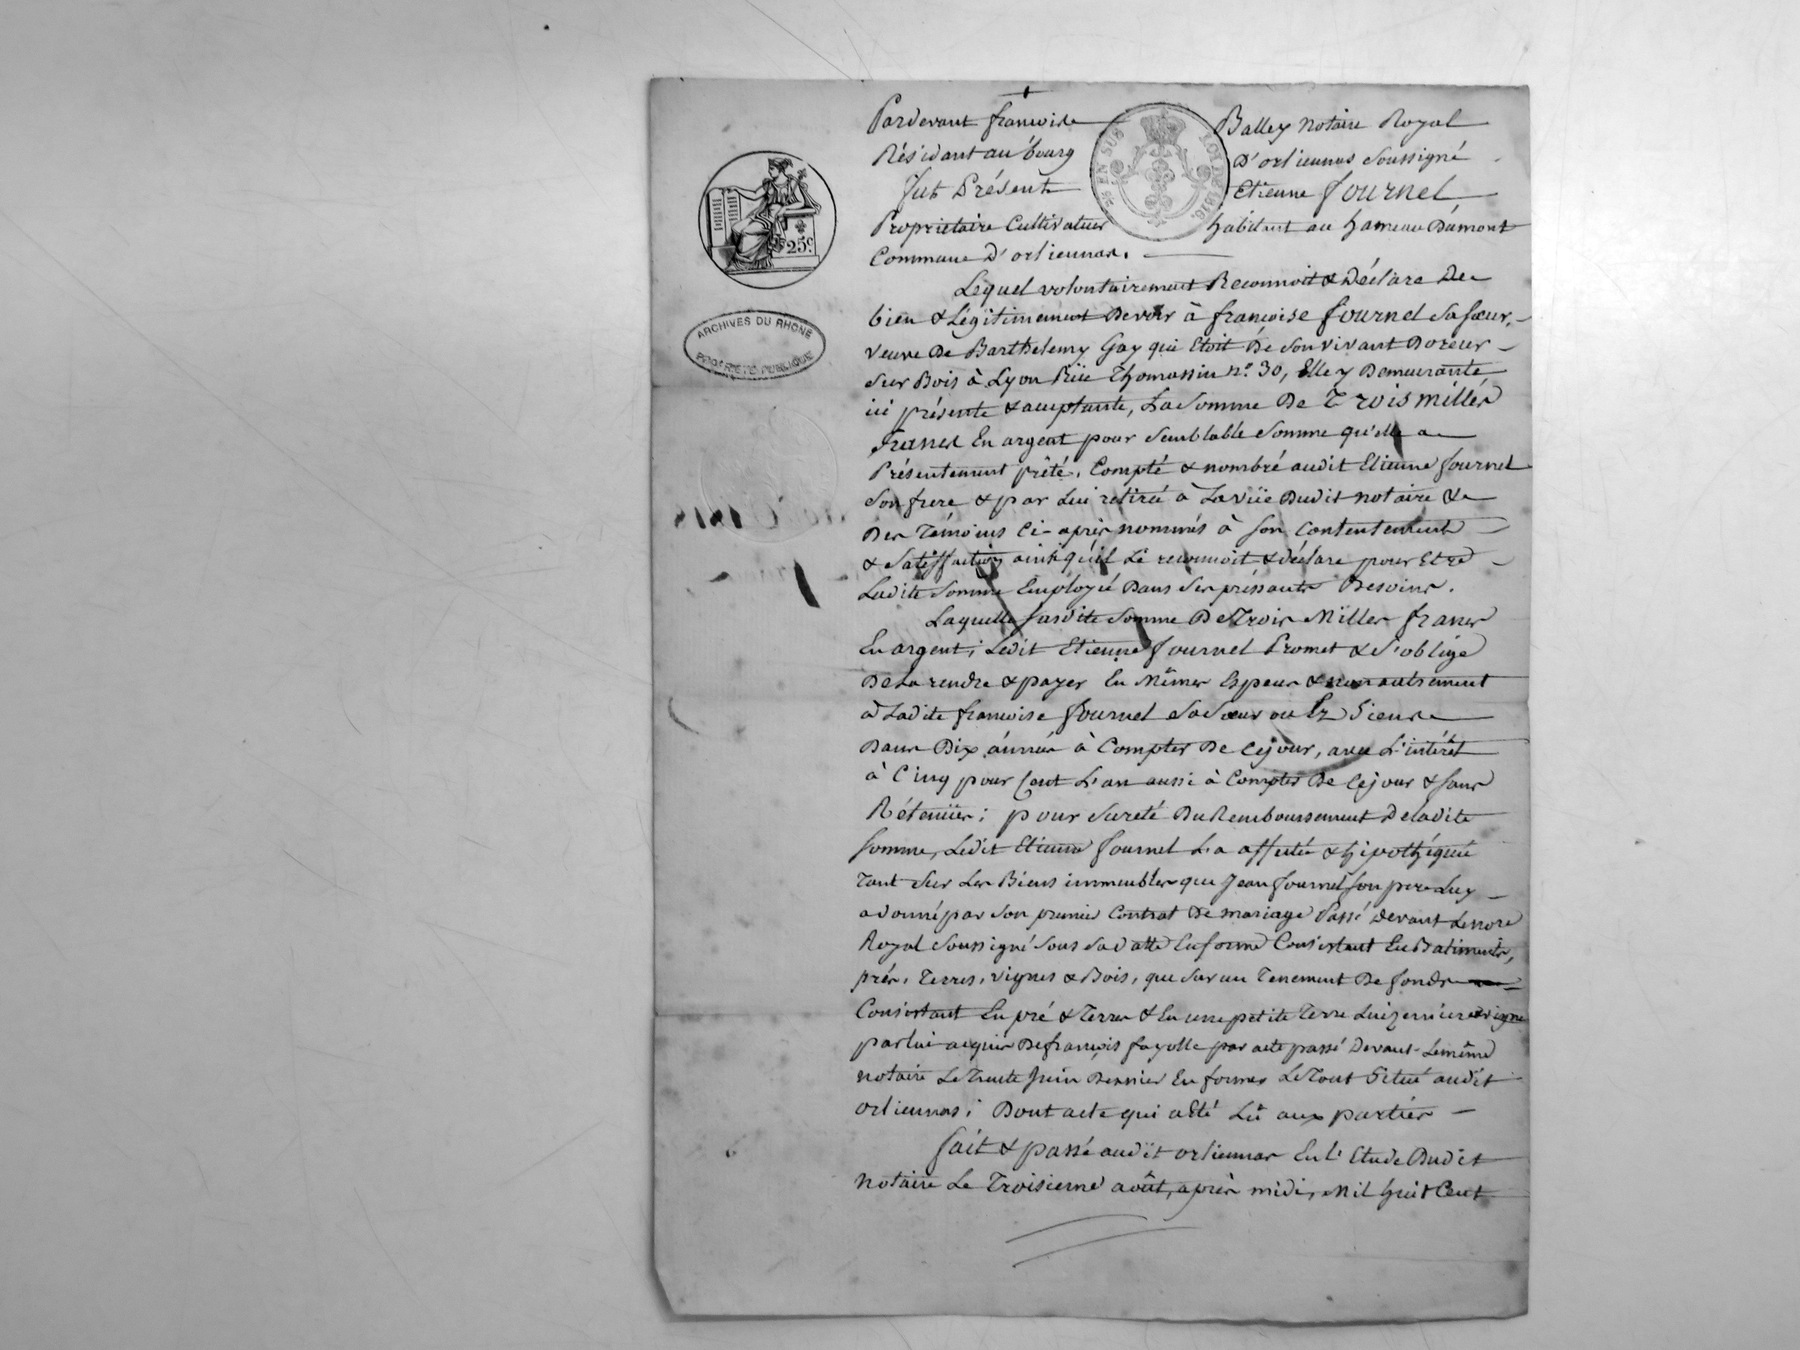 Pardevant francois Balley notaire Royal
Résidant au bourg D'orliennas soussigné
fut Présent Etienne fournel
Proprietaire Cultivateur habitant au hameau Dumont
Commune d'orliennas.
Lequel volontairement Reconnoit & Déclare De
bien & Légitimement Devoir à françoise fournel sa sœur,
veuve De Barthelemy Gay qui Etoit De son vivant Doreur
sur Bois à Lyon Rüe Thomassin n.o 30, Elle y Demeurante
ici présente & acceptante, La Somme De Trois milles
francs En argent pour semblable somme qu'elle a
Présentement prêté, Compté & nombré audit Etienne fournel
son frere & par Lui retirée à La vüe Dudit notaire &
Des Témoins Ci-après nommés à son Contentement
& Satisfaction ainsi qu'il Le reconnoit & déclare pour Etre
Ladite Somme Employé Dans ses pressants Besoins.
Laquelle susdite somme De Trois Milles francs
En argent; Ledit Etienne fournel Promet & s'oblige
De La rendre & payer En Mêmes Especes & non autrement
à Ladite francoise fournel sa sœur ou Ez Siens
Dans Dix années à Compter De Cejour, avec L'intérêt
à Cinq pour Cent L'an aussi à Compter De Cejour & sans
Rétenüe; pour sureté Du Remboursement De ladite
somme, Ledit Etienne fournel L'a affectée & hipothéquée
Tant sur Les Biens immeubles que Jean fournel son pere Luy
a donné par son premier Contrat De mariage Passé devant Le nore
Royal soussigné sous sa datte En forme Consistant En Batiments,
prés, Terres, vignes & Bois, que sur un Tenement De fonds
Consistant En pré & Terre & En une petite Terre Luizerniere & vigne
par lui acquis De françois fayolle par acte passé devant Lemême
notaire Le Trente Juin Dernier En formes Le Tout Situé audit
orliennas; Dont acte qui a Eté Lû aux parties
fait & passé audit orliennas En l'Etude Dudit
notaire Le Troisieme août, après midi, Mil huit Cent
25.c
ARCHIVES DU RHONE
PROPRIÉTÉ PUBLIQUE
EN SUS
LOI DE 1816